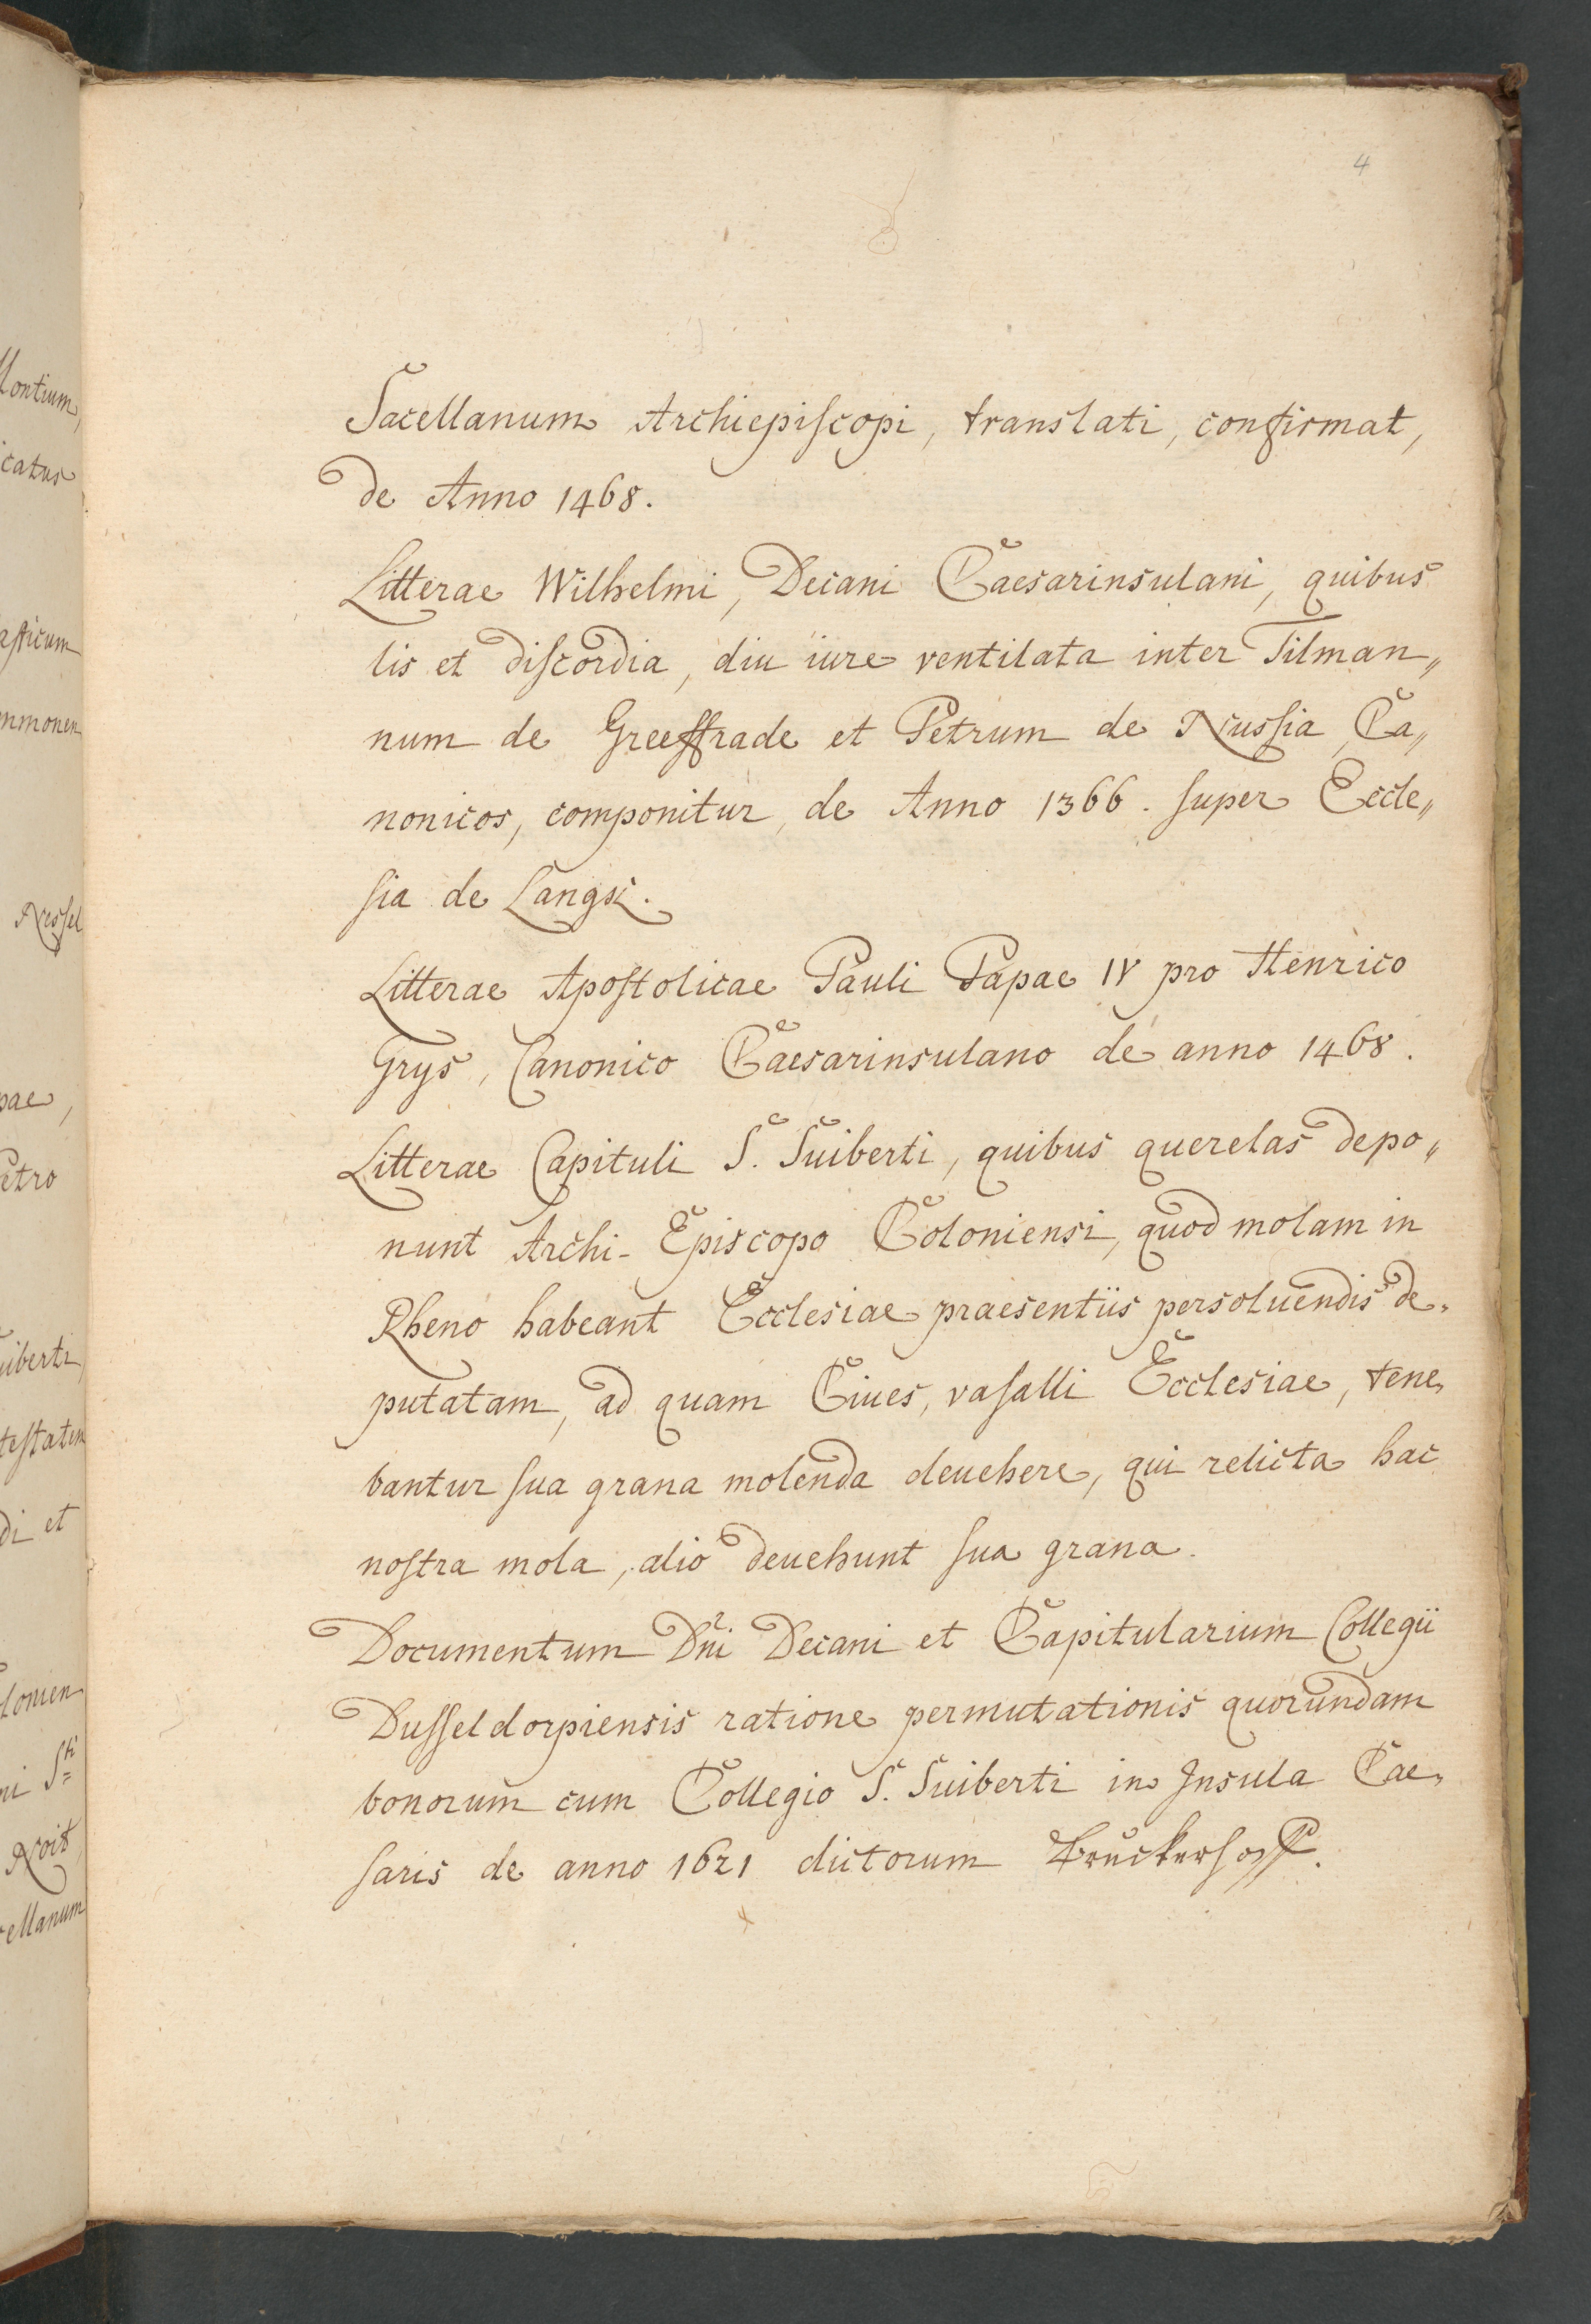 4
Sacellanum Archiepiscopi, translati, confirmat,
de Anno 1468.
Litterae Wilhelmi, Decani Caesarinsulani, quibus
lis et discordia, diu iure ventilata inter Tilman„
num de Greeffrade et Petrum de Nussia, Ca„
nonicos, componitur, de Anno 1366. super Eccle„
sia de Langst.
Litterae Apostolicae Pauli Papae IV pro Henrico
Grys, Canonico Caesarinsulano de anno 1468.
Litterae Capituli S. Suiberti, quibus querelas depo„
nunt Archi-Episcopo Coloniensi, quod molam in
Rheno habeant Ecclesiae praesentiis persoluendis de„
putatam, ad quam Ciues, vasalli Ecclesiae, tene„
bantur sua grana molenda deuehere, qui relicta hac
nostra mola, alio deuehunt sua grana.
Documentum Dni Decani et Capitularium Collegii
Dusseldorpiensis ratione permutationis quorundam
bonorum cum Collegio S. Suiberti in Insula Cae„
saris de anno 1621 dictorum